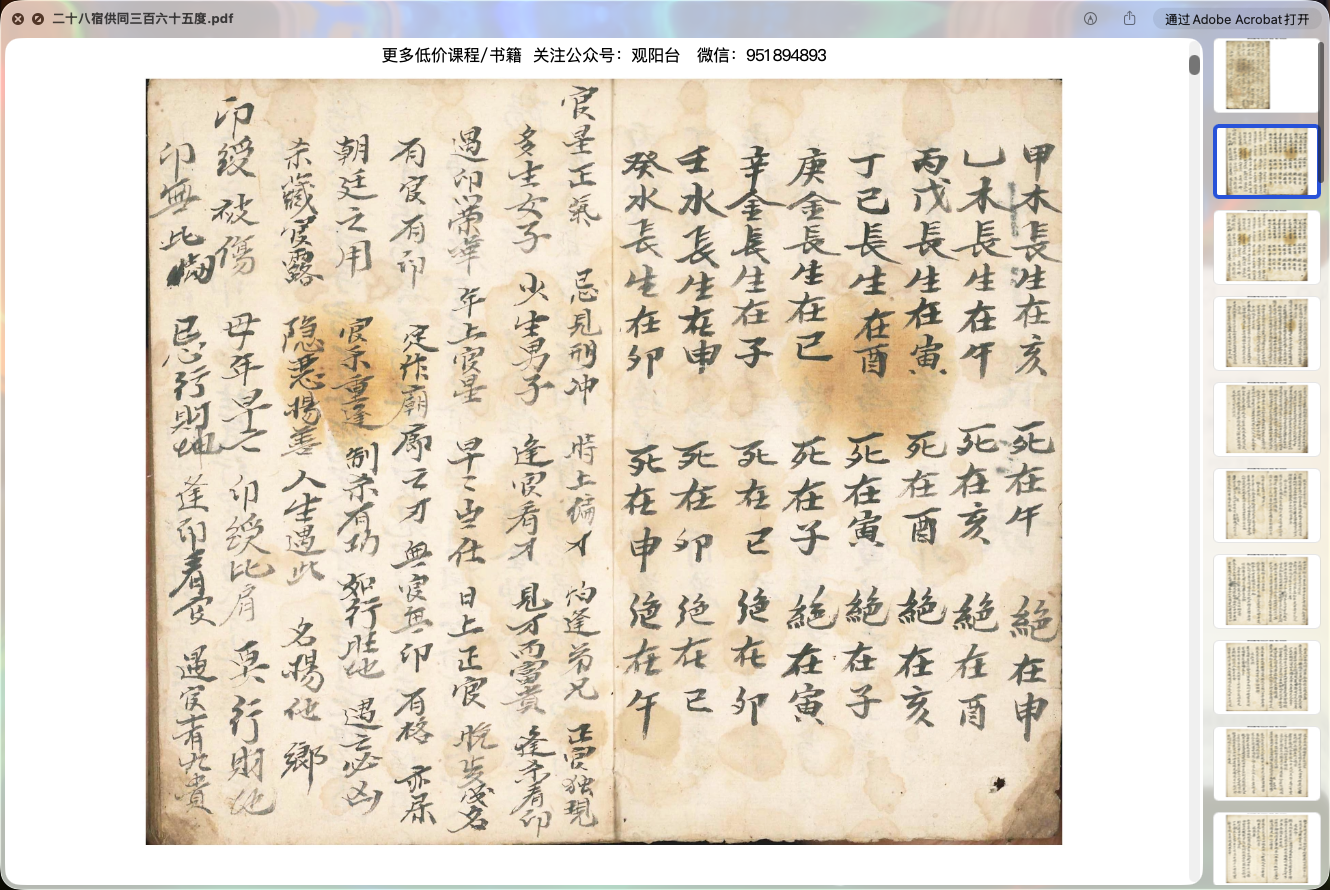 二十八宿供同三百六十五度.pdf
通过Adobe Acrobat打开
更多低价课程/书籍 关注公众号：观阳台 微信：951894893
甲木長生在亥 死在午 絕在申
乙木長生在午 死在亥 絕在酉
丙戊長生在寅 死在酉 絕在亥
丁己長生在酉 死在寅 絕在子
庚金長生在巳 死在子 絕在寅
辛金長生在子 死在巳 绝在卯
壬水長生在申 死在卯 绝在巳
癸水長生在卯 死在申 绝在午
官星正氣 忌見刑冲 時上偏才 怕逢弟兄 正官独現
多生女子 少生男子 逢官看才 見才而富貴 逢杀看印
遇印荣華 年上官星 早亡出仕 日上正官 名
有官有印 定作廟廊之才 無官無印 有格亦
朝廷之用 官杀重逢 制杀有功 如行旺地 遇之必凶
杀藏官露 隐悪揚善 人生遇此 名揚他鄉
印綬被傷 母年早亡 印綬比肩 行財地
印無比 忌行財地 逢印看官 遇官者 貴